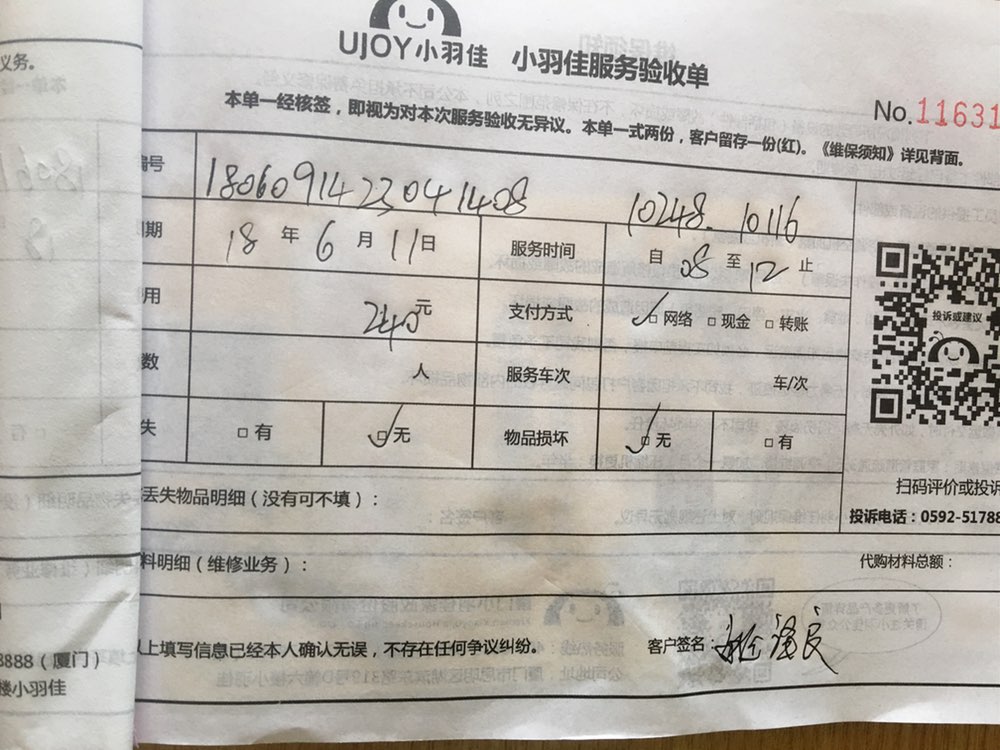 UJOY小羽佳 小羽佳服务验收单
No.11631
本单一经核签，即视为对本次服务验收无异议。本单一式两份，客户留存一份(红)。《维保须知》详见背面。
义务。
编号 1806091423041408 10248. 10116
日期 18 年 6 月 11 日 服务时间 自 08 至 12 止
用 240元 支付方式 ✓□网络 □现金 □转账
数 人 服务车次 车/次
失 □有 ✓□无 物品损坏 ✓□无 □有
投诉或建议
扫码评价或投诉
投诉电话：0592-51788
丢失物品明细（没有可不填）：
料明细（维修业务）： 代购材料总额：
以上填写信息已经本人确认无误，不存在任何争议纠纷。 客户签名：
8888（厦门）
楼小羽佳